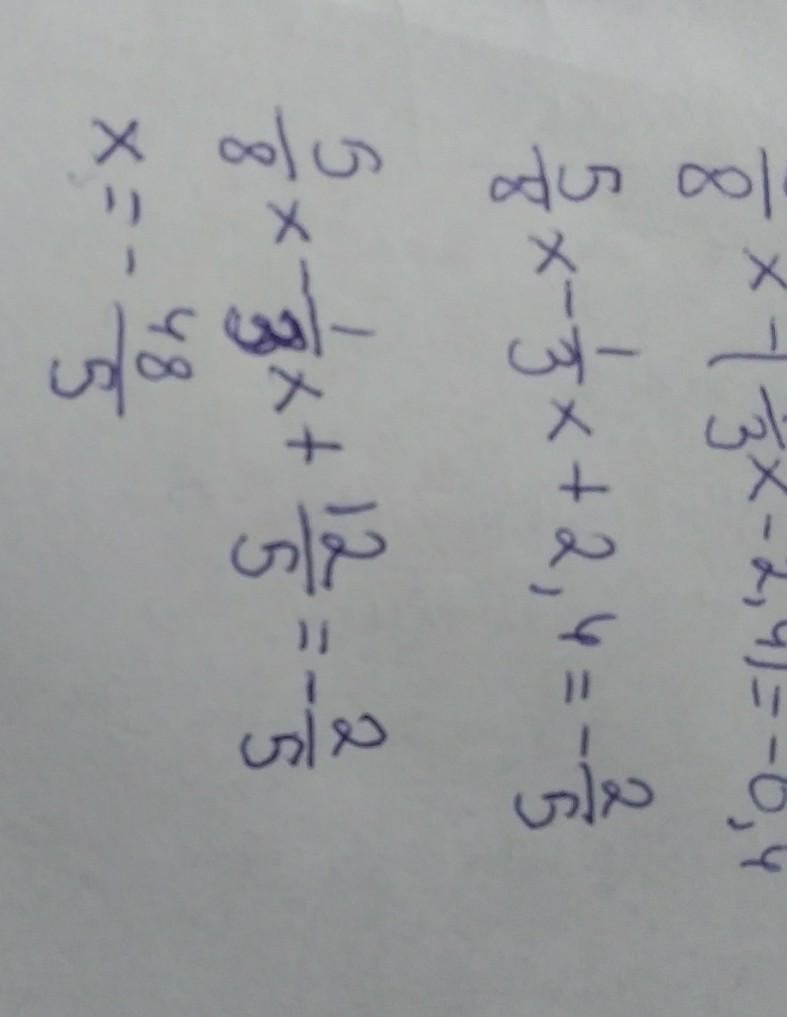 /8 x - (1/3 x - 2,4) = -0,4
5/8 x - 1/3 x + 2,4 = - 2/5
5/8 x - 1/3 x + 12/5 = - 2/5
x = - 48/5